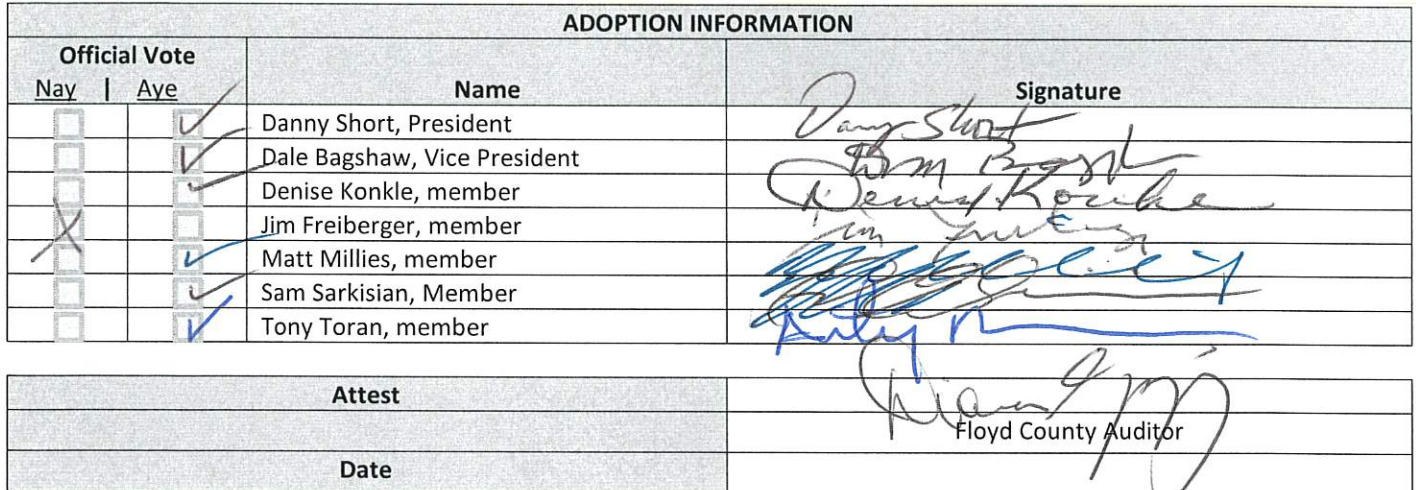 ADOPTION INFORMATION
Official Vote
Nay | Aye Name Signature
Danny Short, President Danny Short
Dale Bagshaw, Vice President
Denise Konkle, member Denise Konkle
Jim Freiberger, member
Matt Millies, member
Sam Sarkisian, Member
Tony Toran, member
Attest
Floyd County Auditor
Date